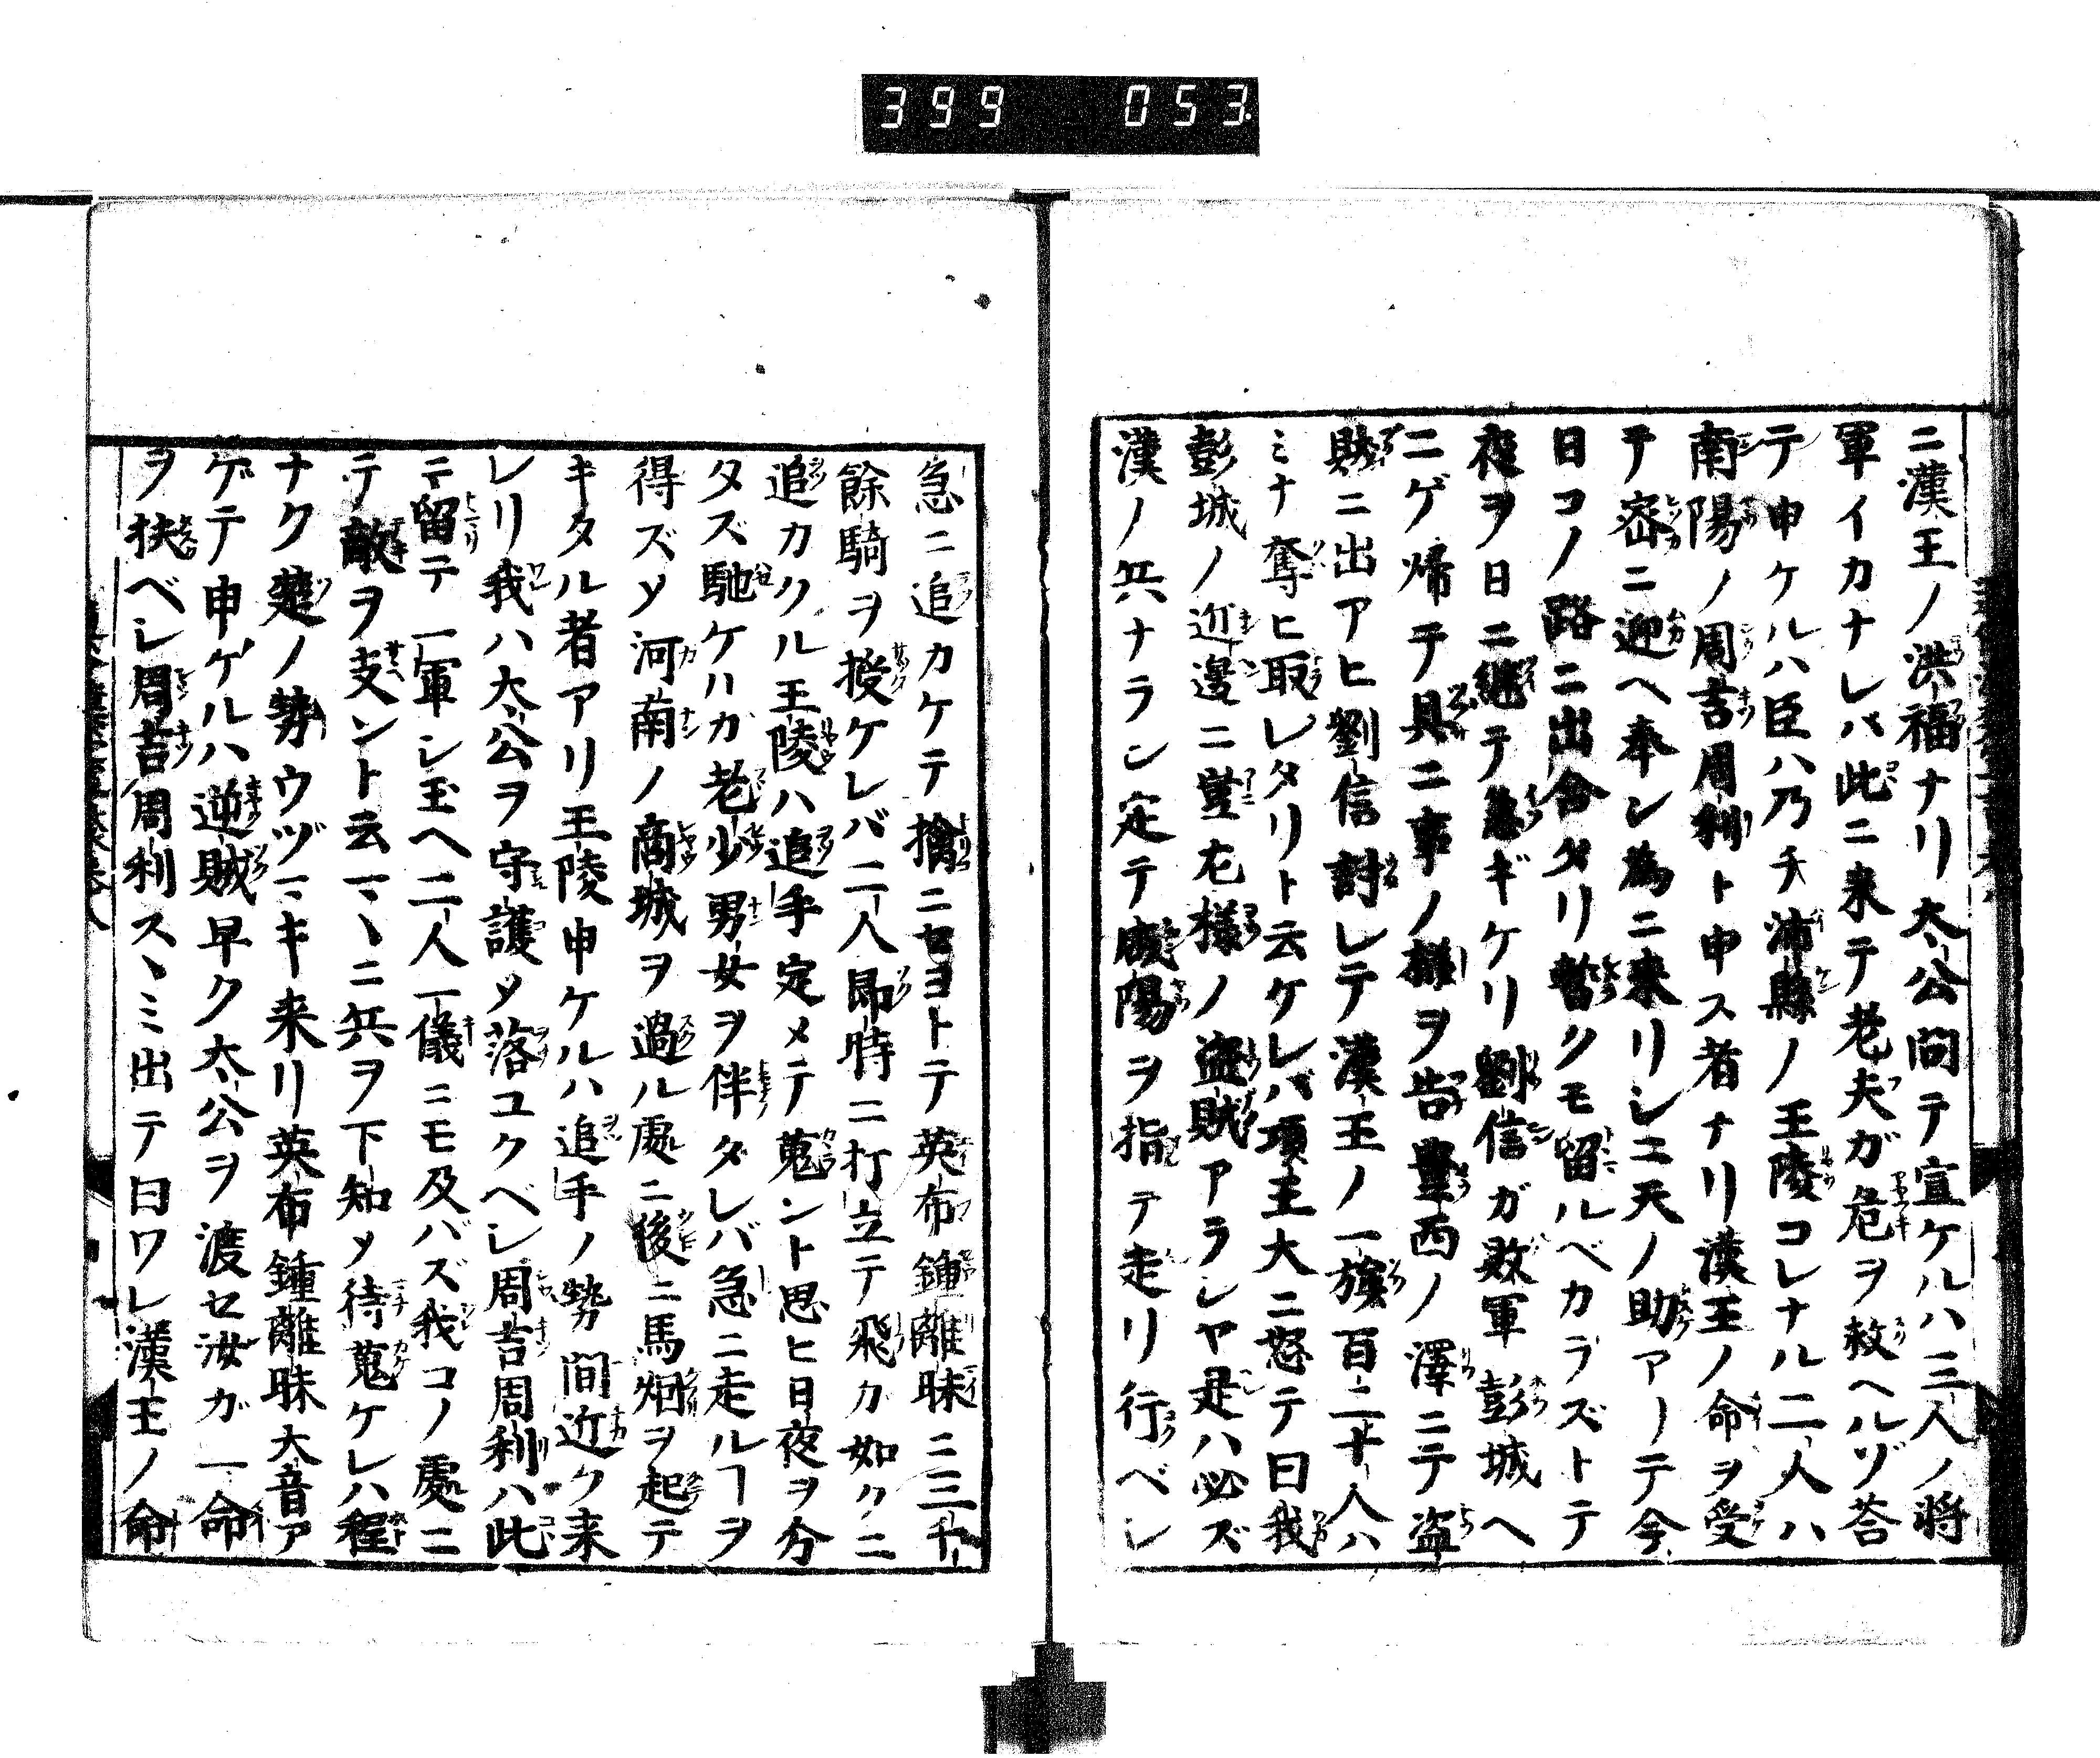 399 053
ニ漢王ノ洪福ナリ太公問テ宣ケルハ三人ノ将
軍イカナレバ此ニ来テ老夫ガ危ヲ救ヘルゾ荅
テ申ケルハ臣ハ乃チ沛縣ノ王陵コレナル二人ハ
南陽ノ周吉周利ト申ス者ナリ漢王ノ命ヲ受
テ密ニ迎ヘ奉ン為ニ来リシニ天ノ助アノテ今
日コノ路ニ出合タリ暫クモ留ルベカラズトテ
夜ヲ日ニ継テ急ギケリ劉信ガ敗軍彭城ヘ
ニゲ帰テ具ニ事ノ様ヲ告霊西ノ澤ニテ盗
賊ニ出アヒ劉信討レテ漢王ノ一族百二十人ハ
ミナ奪ヒ取レタリト云ケレバ項王大ニ怒テ曰我
彭城ノ近邉ニ豈左様ノ盗賊アラシヤ是ハ必ズ
漢ノ兵ナラン定テ咸陽ヲ指テ走リ行ベシ
急ニ追カケテ擒ニセヨトテ英布鍾離昧ニ三千
餘騎ヲ授ケレバ二人即時ニ打立テ飛カ如クニ
追カクル王陵ハ追手定メテ蒐ント思ヒ日夜ヲ分
タズ馳ケハカ老少男女ヲ伴タレバ急ニ走ルヿヲ
得ズソ河南ノ商城ヲ過ル處ニ後ニ馬烟ヲ起テ
キタル者アリ王陵申ケルハ追手ノ勢間近ク来
レリ我ハ太公ヲ守護メ落ユクベシ周吉周利ハ此
ニ留テ一軍シ玉ヘ二人一儀ニモ及バズ我コノ處ニ
テ敵ヲ支ント云一ヽニ兵ヲ下知メ待蒐ケレハ程
ナク楚ノ勢ウヅマキ来リ英布鍾離昧大音ア
ゲテ申ケルハ逆賊早ク太公ヲ渡セ汝ガ一命
ヲ扶ベシ周吉周利スヽミ出テ曰ワレ漢王ノ命